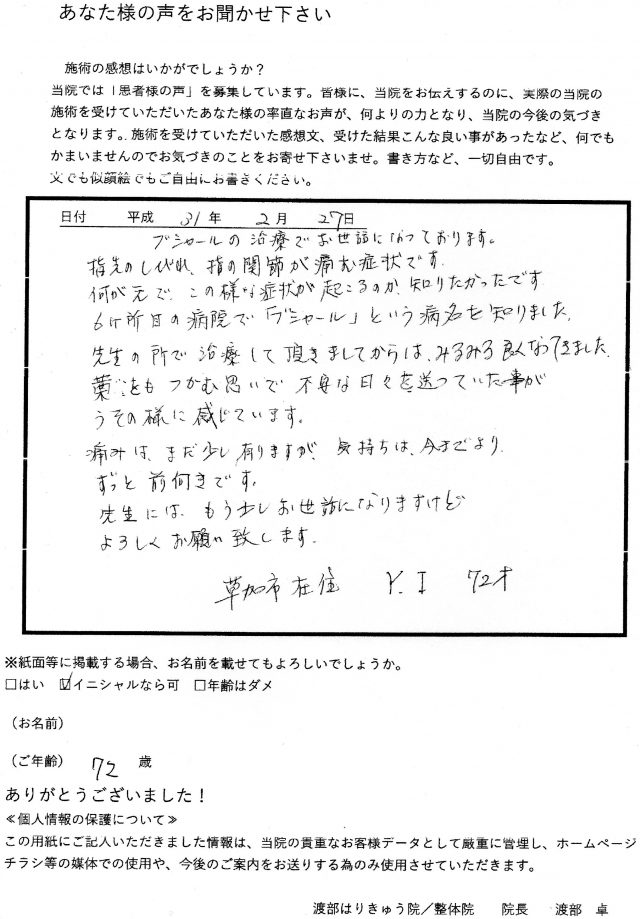 あなた様の声をお聞かせ下さい
施術の感想はいかがでしょうか？
当院では「患者様の声」を募集しています。皆様に、当院をお伝えするのに、実際の当院の
施術を受けていただいたあなた様の率直なお声が、何よりの力となり、当院の今後の気づき
となります。施術を受けていただいた感想文、受けた結果こんな良い事があったなど、何でも
かまいませんのでお気づきのことをお寄せ下さいませ。書き方など、一切自由です。
文でも似顔絵でもご自由にお書きください。
日付 平成 31年 2月 27日
ブシャールの治療でお世話になっております。
指先のしびれ、指の関節が痛む症状です。
何が元で、この様な症状が起こるのか、知りたかったです
6ヶ所目の病院で「ブシャール」という病名を知りました。
先生の所で治療して頂きましてからは、みるみる良くなってきました。
藁をもつかむ思いで不安な日々を送っていた事が
うその様に感じています。
痛みは、まだ少し有りますが、気持ちは、今までより、
ずっと前向きです。
先生には、もう少しお世話になりますけど
よろしくお願い致します。
草加市在住 Y.I 72才
※紙面等に掲載する場合、お名前を載せてもよろしいでしょうか。
□はい ☑イニシャルなら可 □年齢はダメ
（お名前）
（ご年齢） 72 歳
ありがとうございました！
≪個人情報の保護について≫
この用紙にご記入いただきました情報は、当院の貴重なお客様データとして厳重に管理し、ホームページ
チラシ等の媒体での使用や、今後のご案内をお送りする為のみ使用させていただきます。
渡部はりきゅう院／整体院 院長 渡部 卓